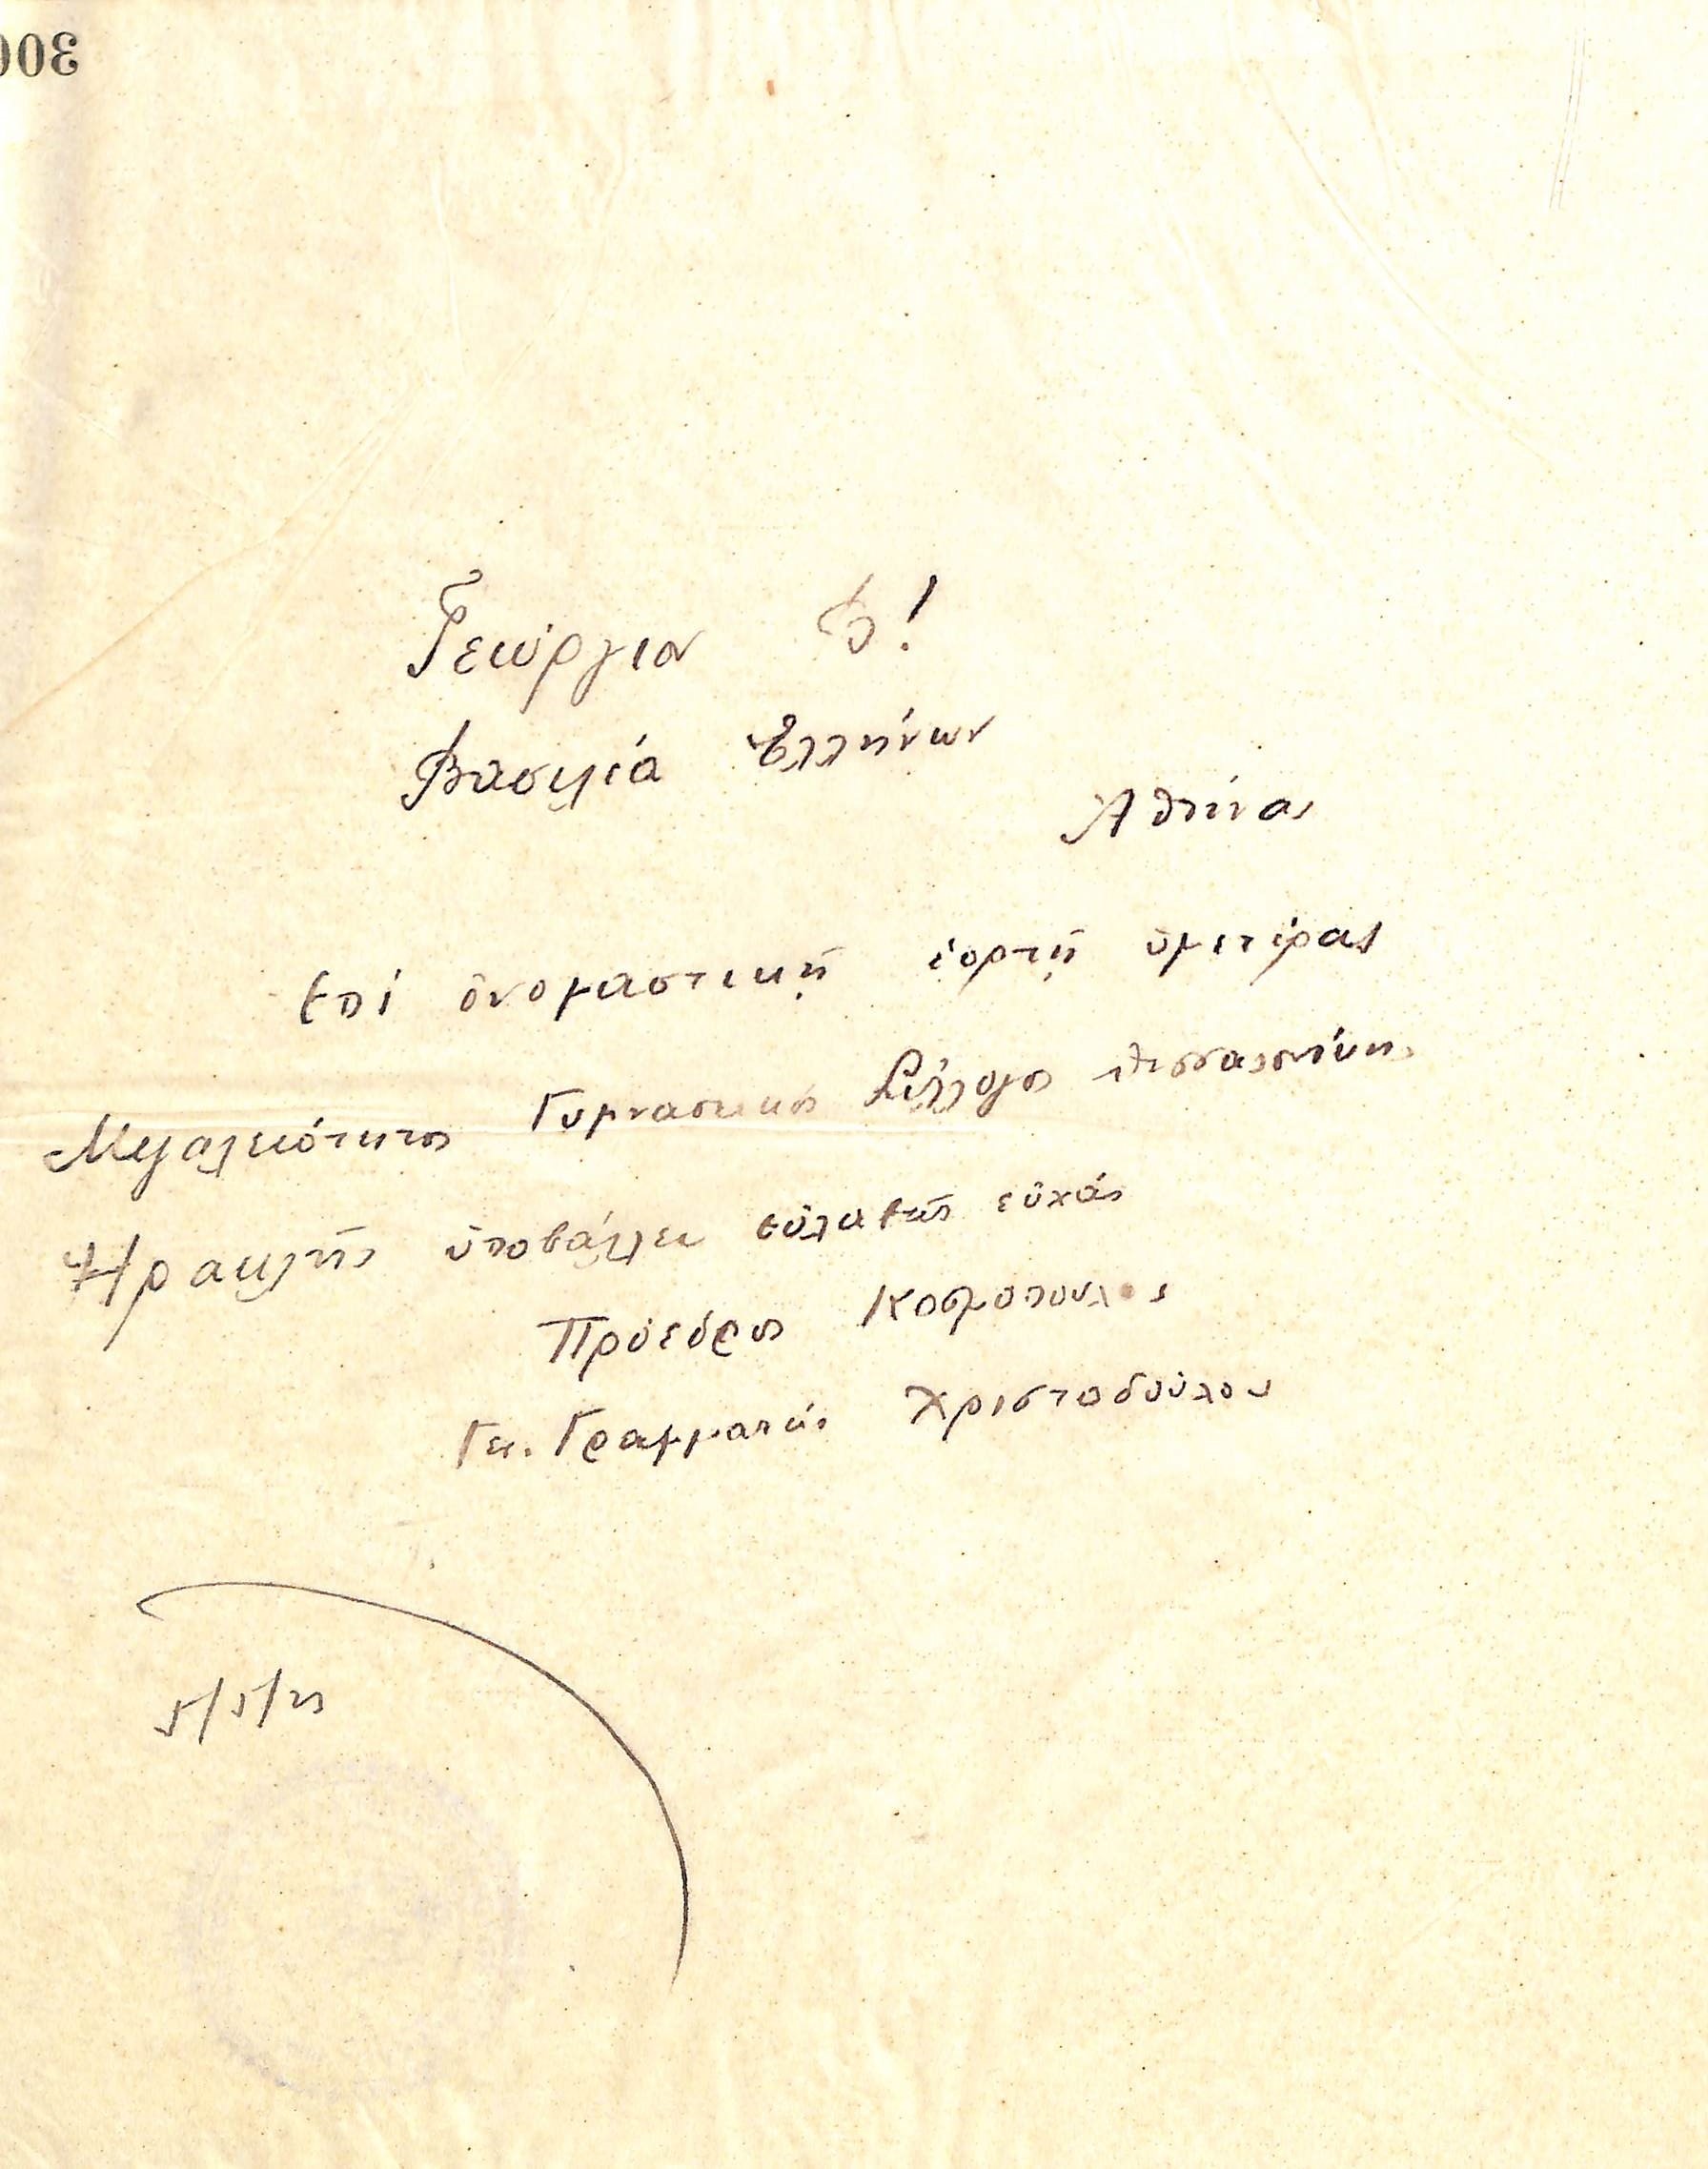 300
Γεώργιον Β!
Βασιλέα Ἑλλήνων
Ἀθήνας
Ἐπί ὀνομαστικῇ ἑορτῇ ὑμετέρας
Μεγαλειότητος Γυμναστικός Σύλλογος Θεσσαλονίκης
Ἡρακλῆς ὑποβάλλει εὐλαβεῖς εὐχάς
Πρόεδρος Κοσμόπουλος
Γεν. Γραμματεύς Χριστοδούλου
5/5/23